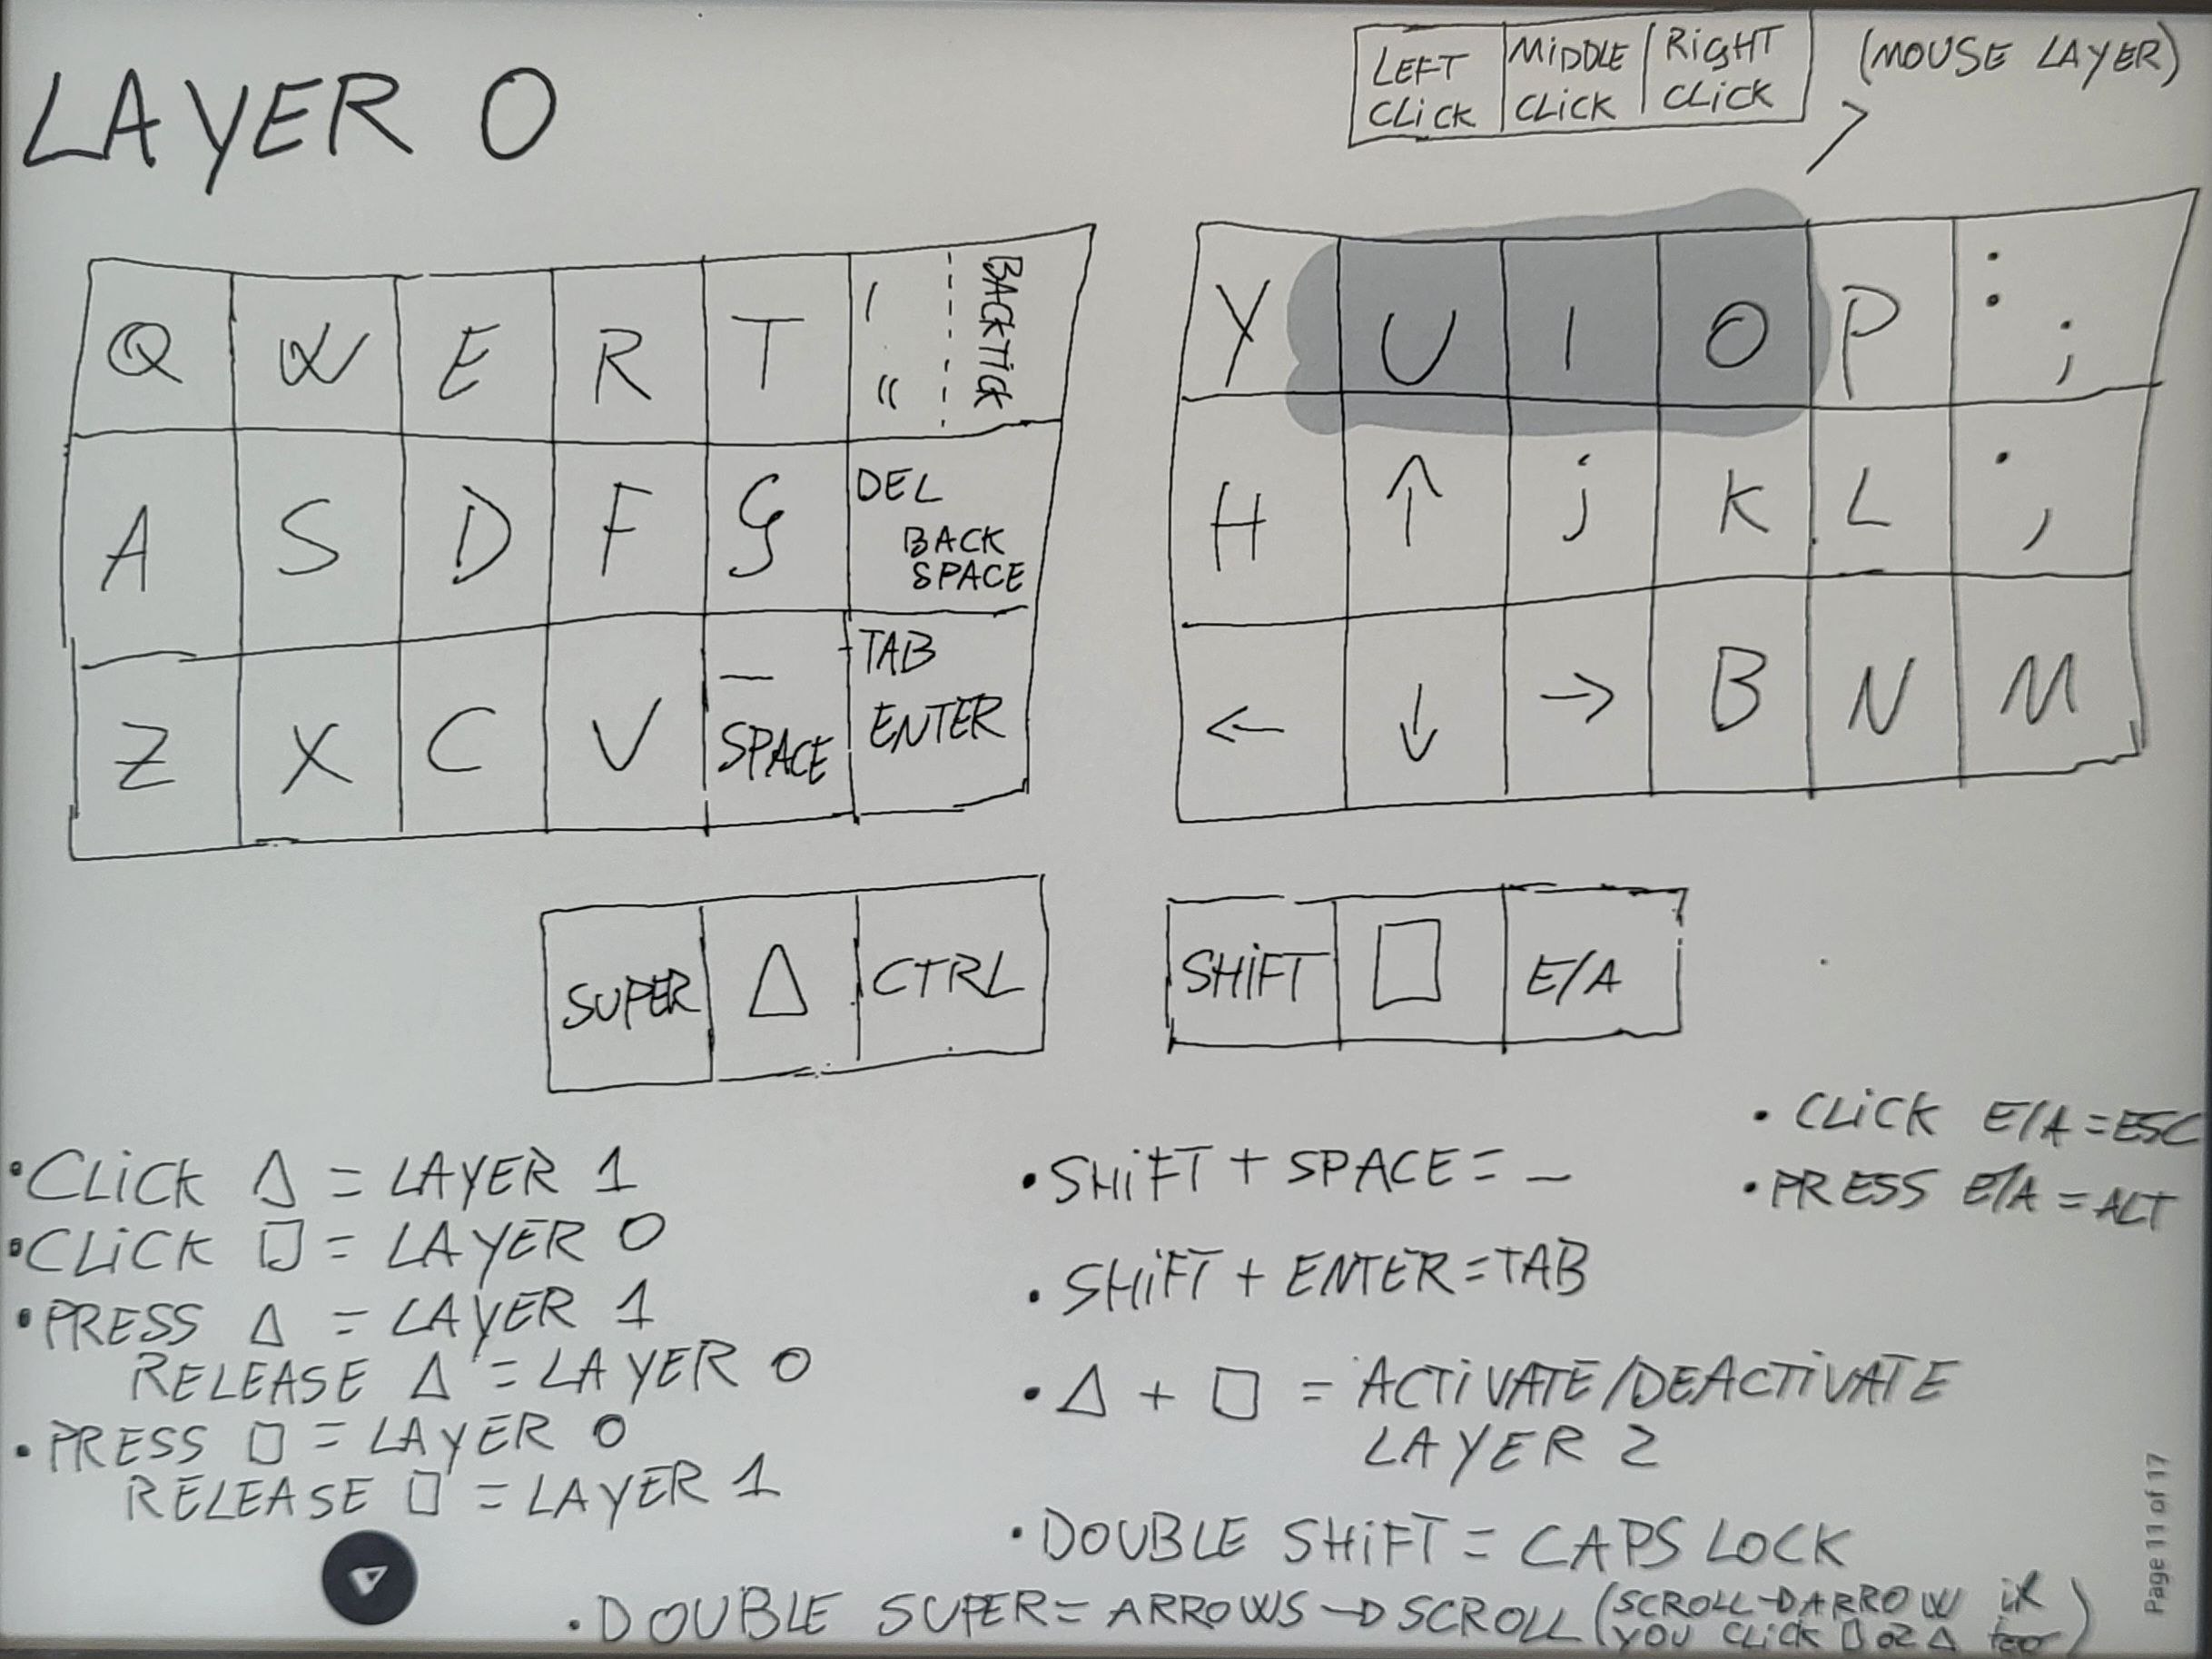 LAYER 0
LEFT CLICK MIDDLE CLICK RIGHT CLICK (MOUSE LAYER)
Q W E R T ' " BACKTICK
A S D F G DEL BACK SPACE
Z X C V _ SPACE TAB ENTER
Y U I O P : ;
H ↑ j K L . ,
← ↓ → B N M
SUPER △ CTRL
SHiFT □ E/A
• CLiCK △ = LAYER 1
• CLiCK □ = LAYER 0
• PRESS △ = LAYER 1
RELEASE △ = LAYER 0
• PRESS □ = LAYER 0
RELEASE □ = LAYER 1
• SHiFT + SPACE = _
• SHiFT + ENTER = TAB
• △ + □ = ACTiVATE/DEACTiVATE
LAYER 2
• CLiCK E/A = ESC
• PRESS E/A = ALT
• DOUBLE SHiFT = CAPS LOCK
• DOUBLE SUPER = ARROWS → SCROLL (SCROLL → ARROW
YOU CLiCK □ OR △)
Page 11 of 17